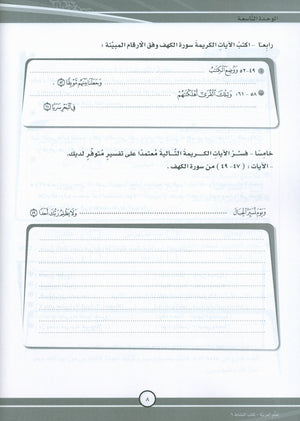 الوحدة التاسعة
رابعـا - اكتب الآيات الكريمة سورة الكهف وفق الأرقام المبينة :
٤٩-٥٢ وَوُضِعَ الْكِتَابُ
وَجَعَلْنَا بَيْنَهُم مَّوْبِقًا
٥٨ - ٦١ وَتِلْكَ الْقُرَىٰ أَهْلَكْنَاهُمْ
فِي الْبَحْرِ سَرَبًا
خامسًا - فسّر الآيات الكـريمـة التّـالية مُعتمدًا على تفسيرٍ مُتوفّرٍ لديك.
- الآيات : ( ٤٧- ٤٩ ) من سورة الكهف .
وَيَوْمَ نُسَيِّرُ الْجِبَالَ
وَلَا يَظْلِمُ رَبُّكَ أَحَدًا
٨
كتاب النشاط ٩